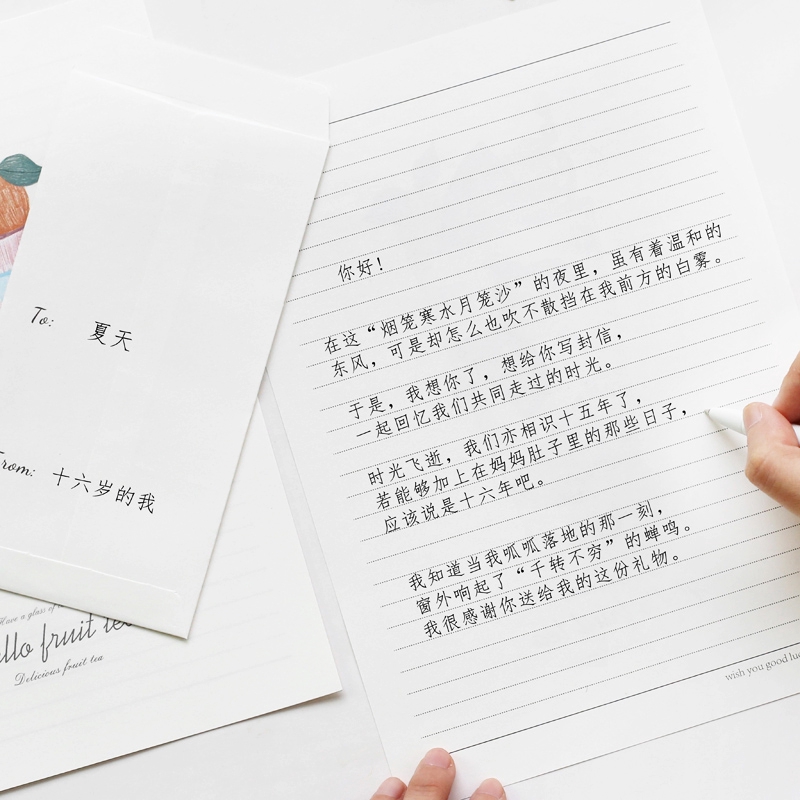 To: 夏天
From: 十六岁的我
Have a glass of
llo fruit tea
Delicious fruit tea
你好！
在这“烟笼寒水月笼沙”的夜里，虽有着温和的
东风，可是却怎么也吹不散挡在我前方的白雾。
于是，我想你了，想给你写封信，
一起回忆我们共同走过的时光。
时光飞逝，我们亦相识十五年了，
若能够加上在妈妈肚子里的那些日子，
应该说是十六年吧。
我知道当我呱呱落地的那一刻，
窗外响起了“千转不穷”的蝉鸣。
我很感谢你送给我的这份礼物。
wish you good luc